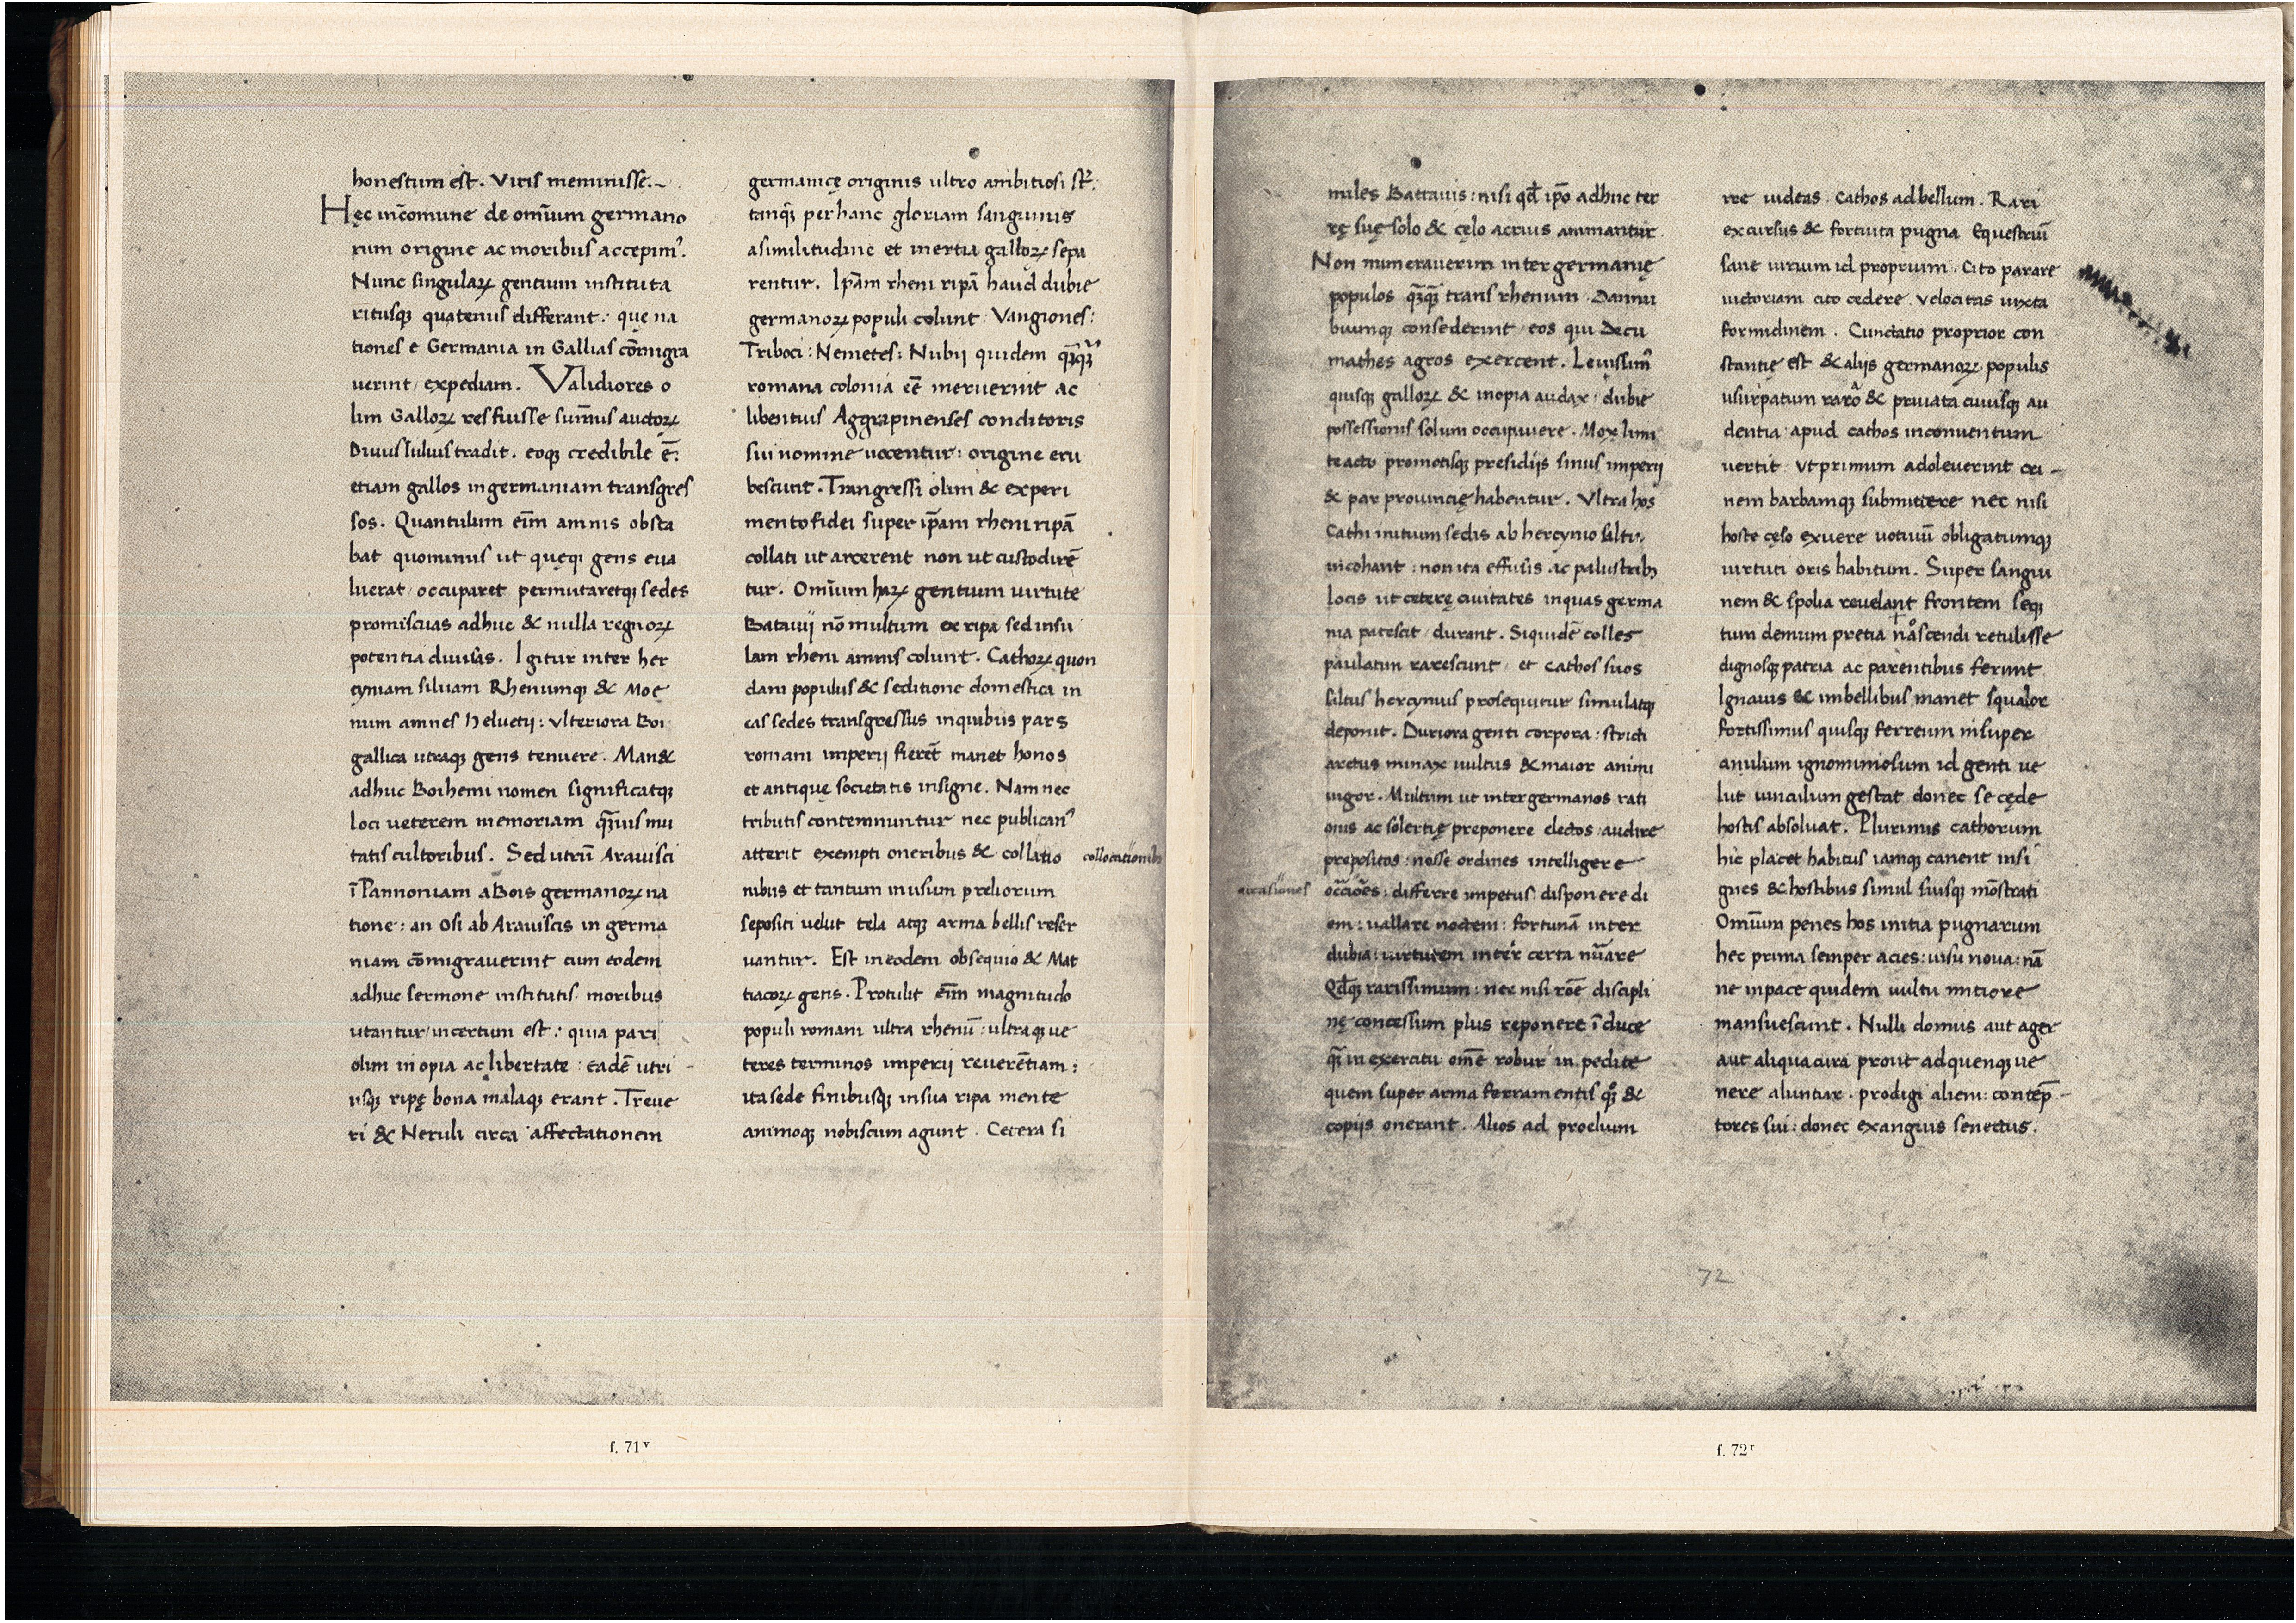 honestum est. Viris meminisse.~
Hęc in c̄omune de omīum germano
rum origine ac moribus accepimꝰ.
Nunc singularꝝ gentium instituta
ritusqꝫ quatenus differant: que na
tiones e Germania in Gallias cōmigra
verint / expediam. Validiores o
lim Gallorꝝ res fuisse sum̄us auctorꝝ
Divus Iulius tradit. eoqꝫ credibile ē:
etiam gallos in germaniam transgres
sos. Quantulum eīm amnis obsta
bat quominus ut quęqꝫ gens eva
luerat / occuparet permutaretqꝫ sedes
promiscuas adhuc & nulla regnorꝝ
potentia divisas. Igitur inter her
cyniam silvam Rhenumqꝫ & Moe
num amnes Helvetij: ulteriora Boi
gallica utraqꝫ gens tenuere. Man&
adhuc Boihemi nomen significatqꝫ
loci veterem memoriam qꝫ̄uis mu
tatis cultoribus. Sed utrū Aravisci
ī Pannoniam a Bois germanorꝝ na
tione: an Osi ab Araviscis in germa
niam cōmigraverint cum eodem
adhuc sermone institutis moribus
utantur / incertum est: quia pari
olim inopia ac libertate: eadē utri
usqꝫ ripę bona malaqꝫ erant. Treve
ri & Neruli circa affectationem
germanicę originis ultro ambitiosi st̄.
tanqꝫ̄ per hanc gloriam sanguinis
a similitudine et inertia gallorꝝ sepa
rentur. Ipā̄m rheni ripā haud dubie
germanorꝝ populi colunt: Vangiones:
Triboci: Nemetes: Nubij quidem qꝫ̄qꝫ̄
romana colonia eē̄ meruerint ac
libentius Aggrapinenses conditoris
sui nomine vocentur: origine eru
bescunt. Transgressi olim & experi
mento fidei super ip̄am rheni ripā
collati ut arcerent non ut custodirē
tur. Omīum harꝝ gentium virtute
Batavij nō multum ex ripa sed insu
lam rheni amnis colunt. Cathorꝝ quon
dam populus & seditione domestica in
eas sedes transgressus in quibus pars
romani imperij fierēt manet honos
et antiquę societatis insigne. Nam nec
tributis contemnuntur nec publicanꝰ
atterit exempti oneribus & collatio collocationibꝫ
nibus et tantum in usum pręliorum
sepositi velut tela atqꝫ arma bellis reser
vantur. Est in eodem obsequio & Mat
tiacorꝝ gens. Protulit eīm magnitudo
populi romani ultra rhenū: ultraqꝫ ve
teres terminos imperij reverētiam:
ita sede finibusqꝫ in sua ripa mente
animoqꝫ nobiscum agunt. Cetera si
f. 71ᵛ
miles Battavis: nisi qđ ip̄o adhuc ter
rę suę solo & cęlo acrius animantur.
Non numeraverim inter germanię
populos qꝫ̄qꝫ̄ trans rhenum Dannu
biumqꝫ consederint / eos qui Decu
mathes agros exercent. Levissimꝰ
quisqꝫ gallorꝝ & inopia audax: dubie
possessionis solum occupavere. Mox limi
te acto promotisqꝫ presidijs sinus imperij
& par provincię habentur. Ultra hos
Cathi initium sedis ab hercynio saltu.
incohant: non ita effusis ac palustribꝫ
locis ut ceterę civitates in quas germa
nia patescit / durant. Siquidē colles
paulatim rarescunt / et Cathos suos
saltus hercynius prosequitur simulatqꝫ
deponit. Duriora genti corpora: stricti
artus minax vultus & maior animi
vigor. Multum ut inter germanos rati
onis ac solertię preponere electos: audire
prepositos: nosse ordines intelligere
occasiones occ̄iōes: differre impetus: disponere di
em: vallare noctem: fortunā inter
dubia: virtutem inter certa nūare
Qđqꝫ rarissimum: nec nisi roē̄ discipli
nę concessum plus reponere ī duce
qꝫ̄ in exercitu om̄e robur in pedite
quem super arma ferramentis qꝫ̊ &
copijs onerant. Alios ad proelium
ire videas. Cathos ad bellum. Rari
excursus & fortuita pugna Equestriū
sane virium id proprium. Cito parare
victoriam cito cedere. Velocitas iuxta
formidinem. Cunctatio proprior con
stantię est & alijs germanorꝝ populis
usurpatum raro & privata cuiusqꝫ au
dentia: apud cathos in conventum
vertit: ut primum adoleverint cri-
nem barbamqꝫ submittere nec nisi
hoste cęso exuere votivū obligatumqꝫ
virtuti oris habitum. Super sangui
nem & spolia revelant frontem seqꝫ
tum demum pretia nascendi retulisse
dignosqꝫ patria ac parentibus ferunt
Ignavis & imbellibus manet squalor
fortissimus quisqꝫ ferreum insuper
anulum ignominiosum id genti ve
lut vinculum gestat donec se cęde
hostis absolvat. Plurimis cathorum
hic placet habitus iamqꝫ canent insi
gnes & hostibus simul suisqꝫ mōstrati
Omīum penes hos initia pugnarum
hec prima semper acies: visu nova: nā
ne in pace quidem vultu mitiore
mansuescunt. Nulli domus aut ager
aut aliqua cura prout ad quenqꝫ ve
nere aluntur. prodigi alieni: contēp
tores sui: donec exanguis senectus.
72
f. 72ʳ